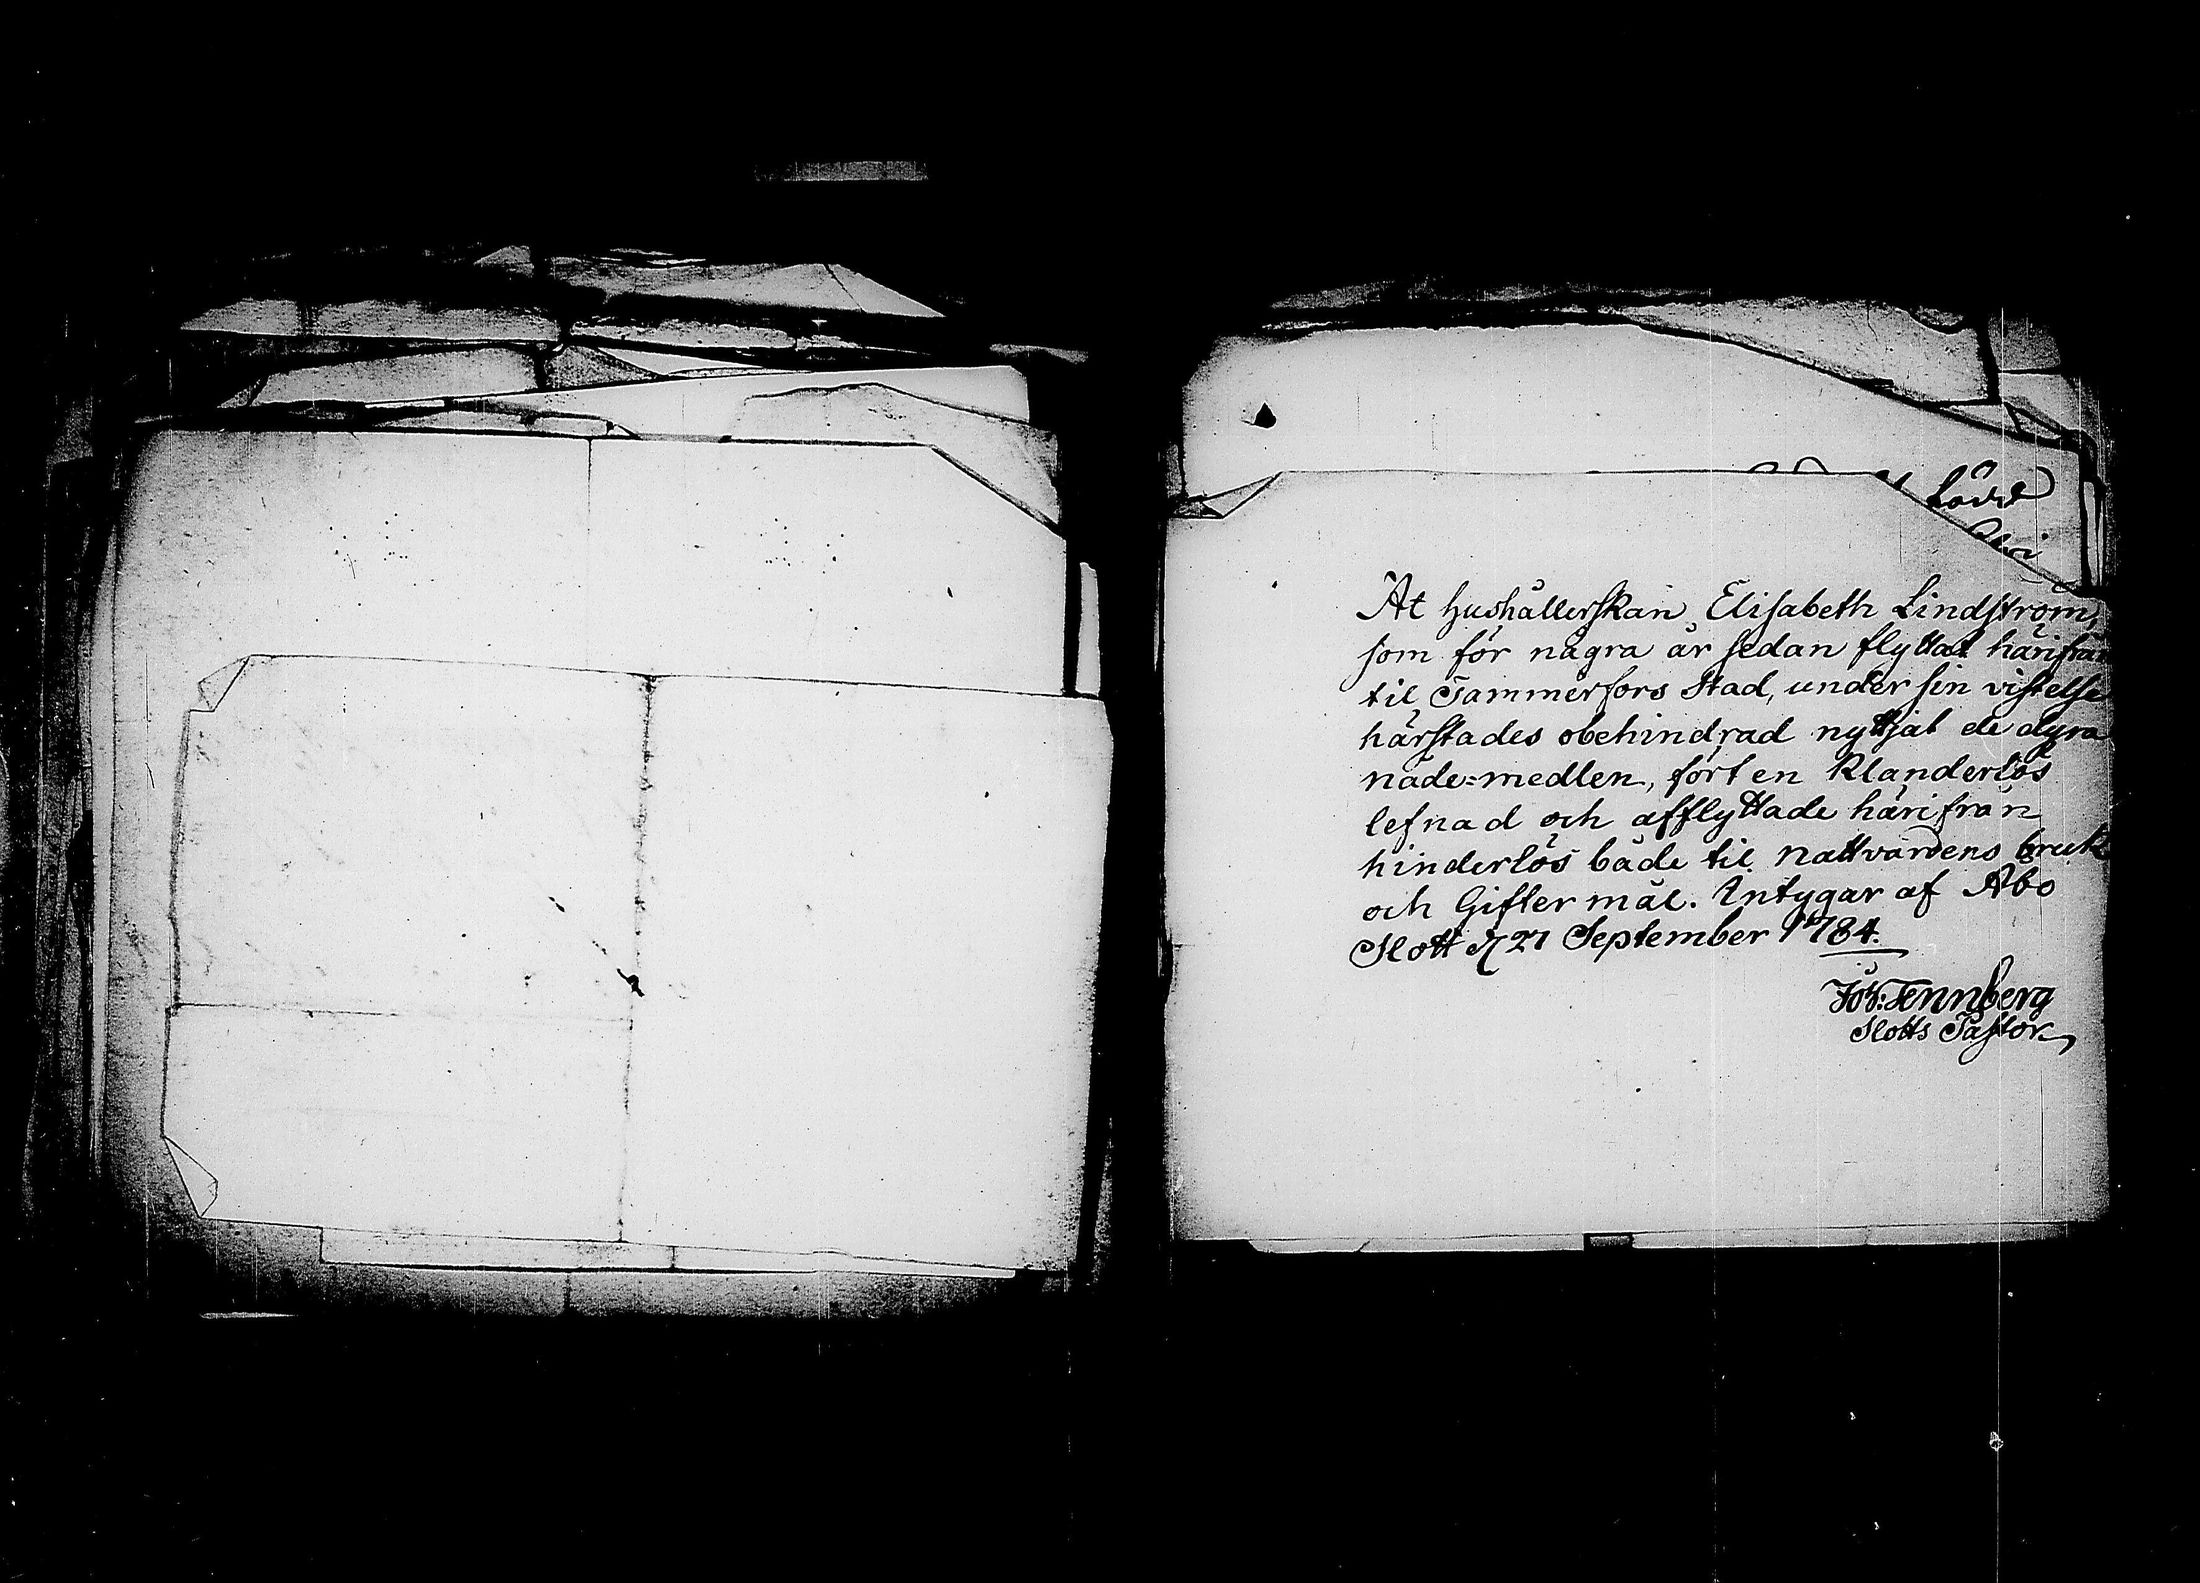 Låds
At hushållerskan Elisabeth Lindström,
som för några år sedan flyttat härifrån
til Tammerfors Stad, under sin vistelse
härstades obehindrad nyttjat de dyra
nåde=medlen, fört en klanderlös
lefnad och afflyttade härifrån
hinderlös både til nattvardens bruk
och Giftermål. Intygar af Åbo
Slott d 27 September 1784.
Joh: Tennberg
Slotts Pastor